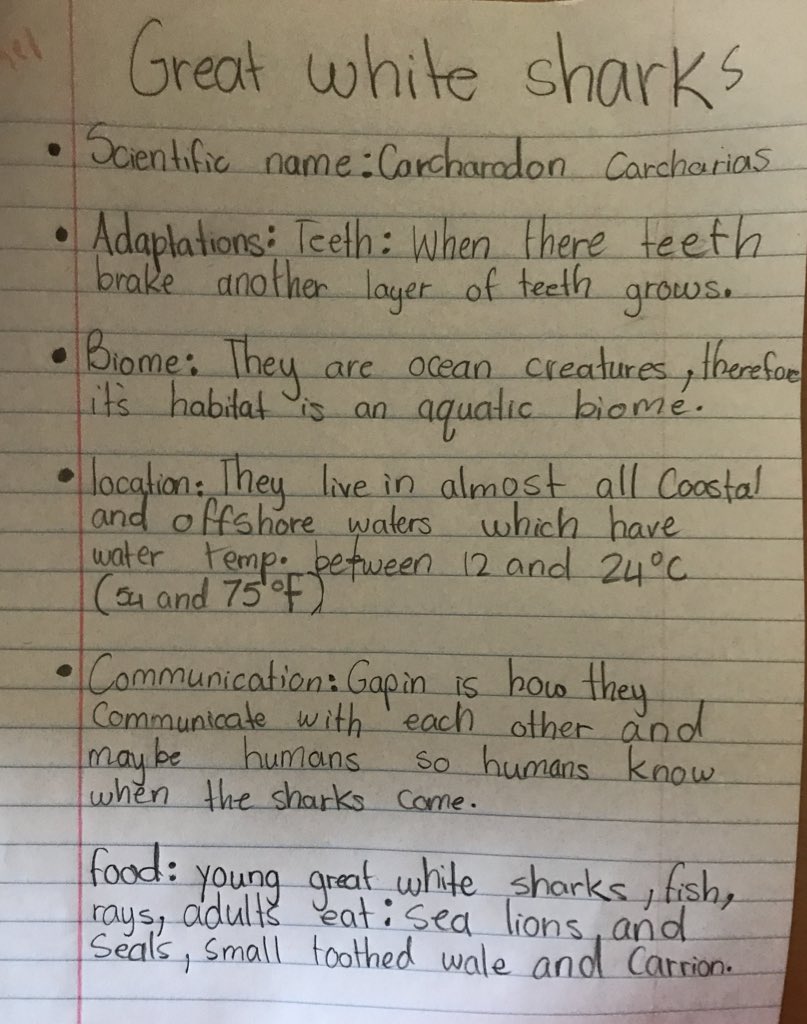 Great white sharks
• Scientific name: Carcharodon Carcharias
• Adaptations: Teeth: When there teeth
brake another layer of teeth grows.
• Biome: They are ocean creatures, therefore
it's habitat is an aquatic biome.
• location: They live in almost all Coastal
and offshore waters which have
water temp. between 12 and 24°C
(54 and 75°F)
• Communication: Gapin is how they
Communicate with each other and
maybe humans so humans know
when the sharks come.
food: young great white sharks, fish,
rays, adults eat: sea lions, and
Seals, small toothed wale and Carrion.